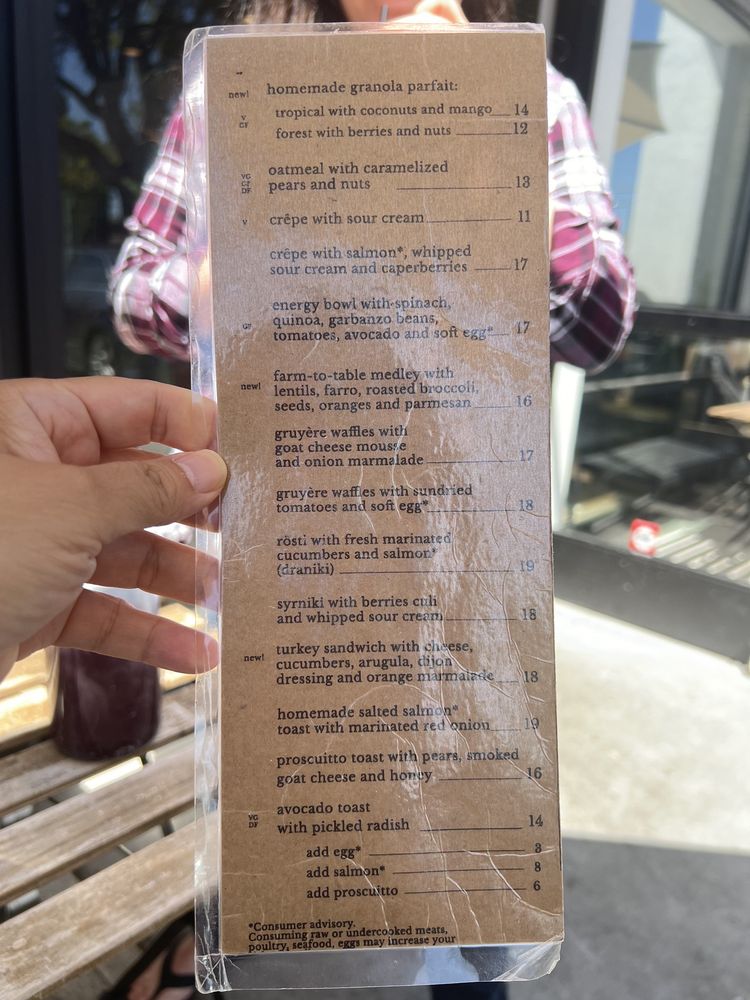 new! homemade granola parfait:
V tropical with coconuts and mango 14
GF forest with berries and nuts 12
VG oatmeal with caramelized
GF DF pears and nuts 13
V crêpe with sour cream 11
crêpe with salmon*, whipped
sour cream and caperberries 17
energy bowl with spinach,
GF quinoa, garbanzo beans,
tomatoes, avocado and soft egg* 17
farm-to-table medley with
new! lentils, farro, roasted broccoli,
seeds, oranges and parmesan 16
gruyère waffles with
goat cheese mousse
and onion marmalade 17
gruyère waffles with sundried
tomatoes and soft egg* 18
rösti with fresh marinated
cucumbers and salmon*
(draniki) 19
syrniki with berries culi
and whipped sour cream 18
turkey sandwich with cheese,
new! cucumbers, arugula, dijon
dressing and orange marmalade 18
homemade salted salmon*
toast with marinated red onion 19
proscuitto toast with pears, smoked
goat cheese and honey 16
avocado toast
VG DF with pickled radish 14
add egg* 3
add salmon* 8
add proscuitto 6
*Consumer advisory.
Consuming raw or undercooked meats,
poultry, seafood, eggs may increase your